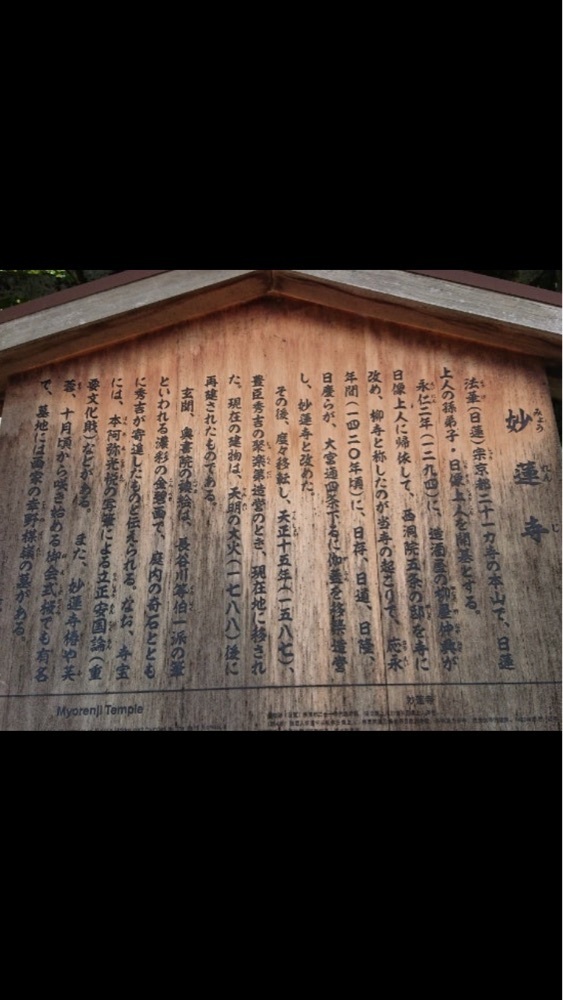 妙蓮寺
みょうれんじ
法華(日蓮)宗京都二十一カ寺の本山で、日蓮
上人の孫弟子・日像上人を開基とする。
永仁二年(一二九四)に、造酒屋の柳屋仲興が
日像上人に帰依して、西洞院五条の邸を寺に
改め、柳寺と称したのが当寺の起こりで、応永
年間(一四二〇年頃)に、日存、日道、日隆、
日慶らが、大宮通四条下るに伽藍を移築造営
し、妙蓮寺と改めた。
その後、度々移転し、天正十五年(一五八七)、
豊臣秀吉の聚楽第造営のとき、現在地に移され
た。現在の建物は、天明の大火(一七八八)後に
再建されたものである。
玄関、奥書院の襖絵は、長谷川等伯一派の筆
といわれる濃彩の金碧画で、庭内の奇石ととも
に秀吉が寄進したものと伝えられる。なお、寺宝
には、本阿弥光悦の写筆による立正安国論(重
要文化財)などがある。また、妙蓮寺椿や芙
蓉、十月頃から咲き始める御会式桜でも有名
で、墓地には画家の幸野楳嶺の墓がある。
Myorenji Temple
妙蓮寺